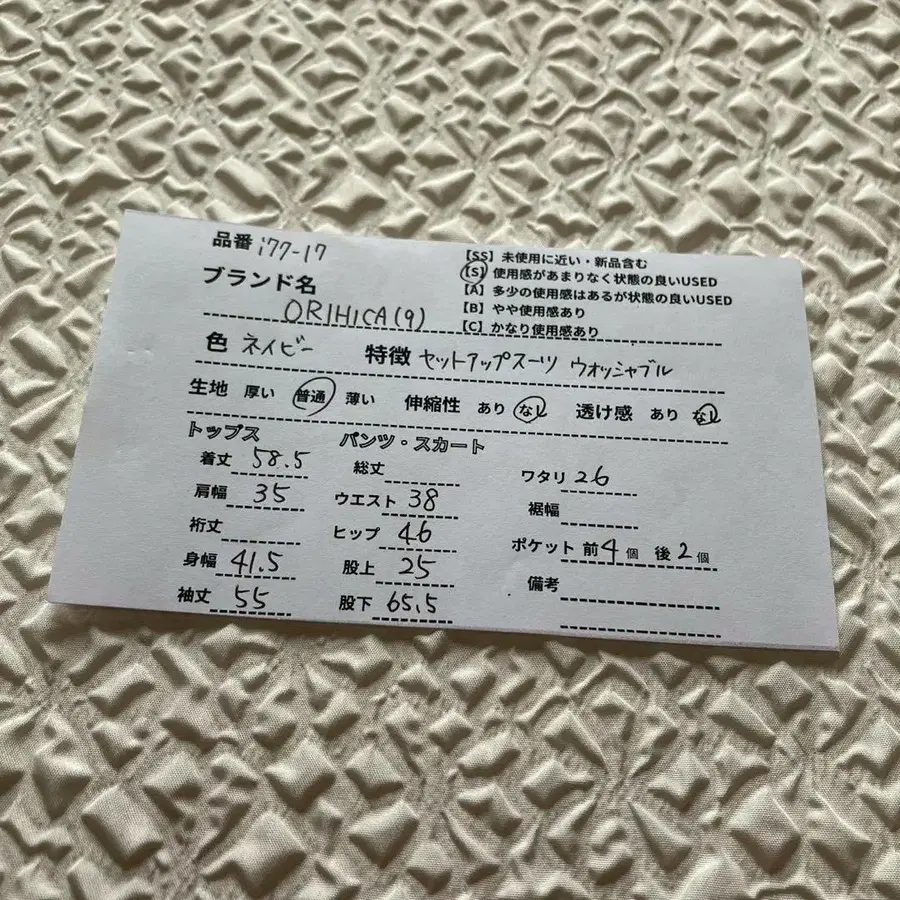 品番 i77-17
【SS】未使用に近い・新品含む
【S】使用感があまりなく状態の良いUSED
【A】多少の使用感はあるが状態の良いUSED
【B】やや使用感あり
【C】かなり使用感あり
ブランド名
ORIHICA(9)
色 ネイビー 特徴 セットアップスーツ ウオッシャブル
生地 厚い 普通 薄い 伸縮性 あり なし 透け感 あり なし
トップス
着丈 58.5
肩幅 35
裄丈
身幅 41.5
袖丈 55
パンツ・スカート
総丈
ウエスト 38
ヒップ 46
股上 25
股下 65.5
ワタリ 26
裾幅
ポケット 前4個 後2個
備考